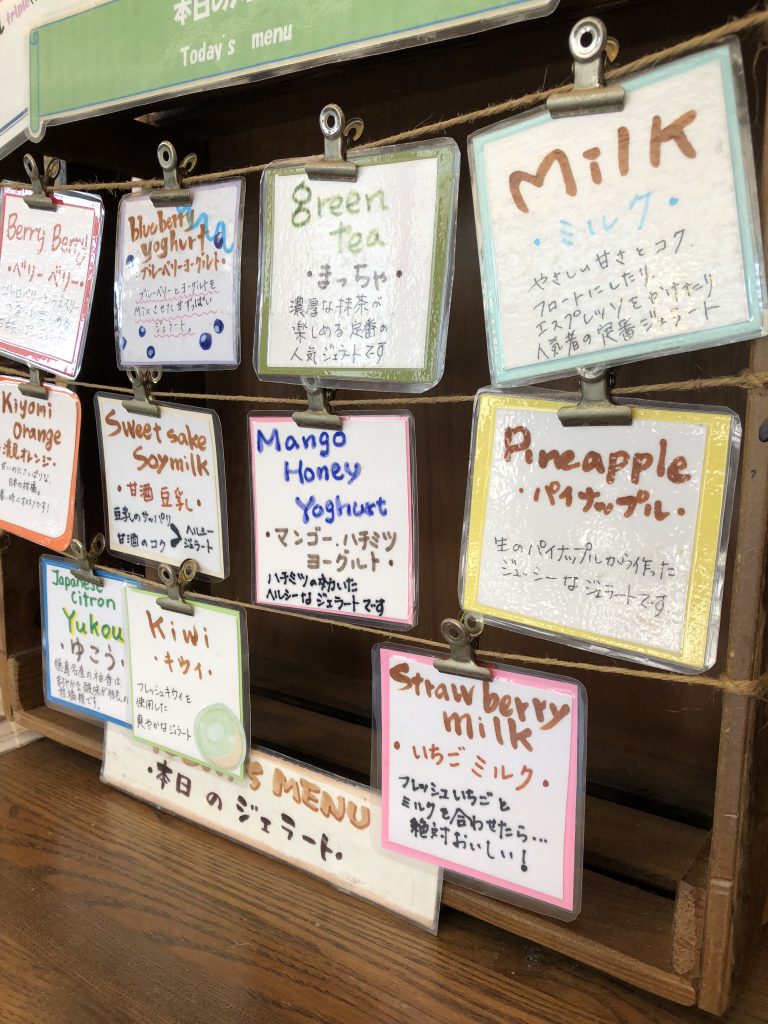 triple
本日の
Today's menu
Berry Berry
・ベリーベリー・
blueberry
yoghurt
ブルーベリーヨーグルト・
ブルーベリーとヨーグルトを
Mixさせた甘ずっぱい
ジェラート。
green
tea
・まっちゃ・
濃厚な抹茶が
楽しめる定番の
人気ジェラートです
Milk
・ミルク・
やさしい甘さとコク
フロートにしたり
エスプレッソをかけたり
人気者の定番ジェラート
Kiyomi
Orange
・清見オレンジ・
日本の柑橘。
Sweet sake
Soymilk
・甘酒 豆乳・
豆乳のサッパリ
甘酒のコク
>ヘルシー
ジェラート
Mango
Honey
Yoghurt
・マンゴー ハチミツ
ヨーグルト・
ハチミツの効いた
ヘルシーなジェラートです
Pineapple
・パイナップル・
生のパイナップルから作った
ジューシーなジェラートです
Japanese
Citron
Yukou
・ゆこう・
徳島名産の柚香は
柑橘類です。
Kiwi
・キウイ・
フレッシュキウイを
使用した
爽やかなジェラート
Strawberry
milk
・いちごミルク・
フレッシュいちごと
ミルクを合わせたら…
絶対おいしい!
MENU
・本日のジェラート・